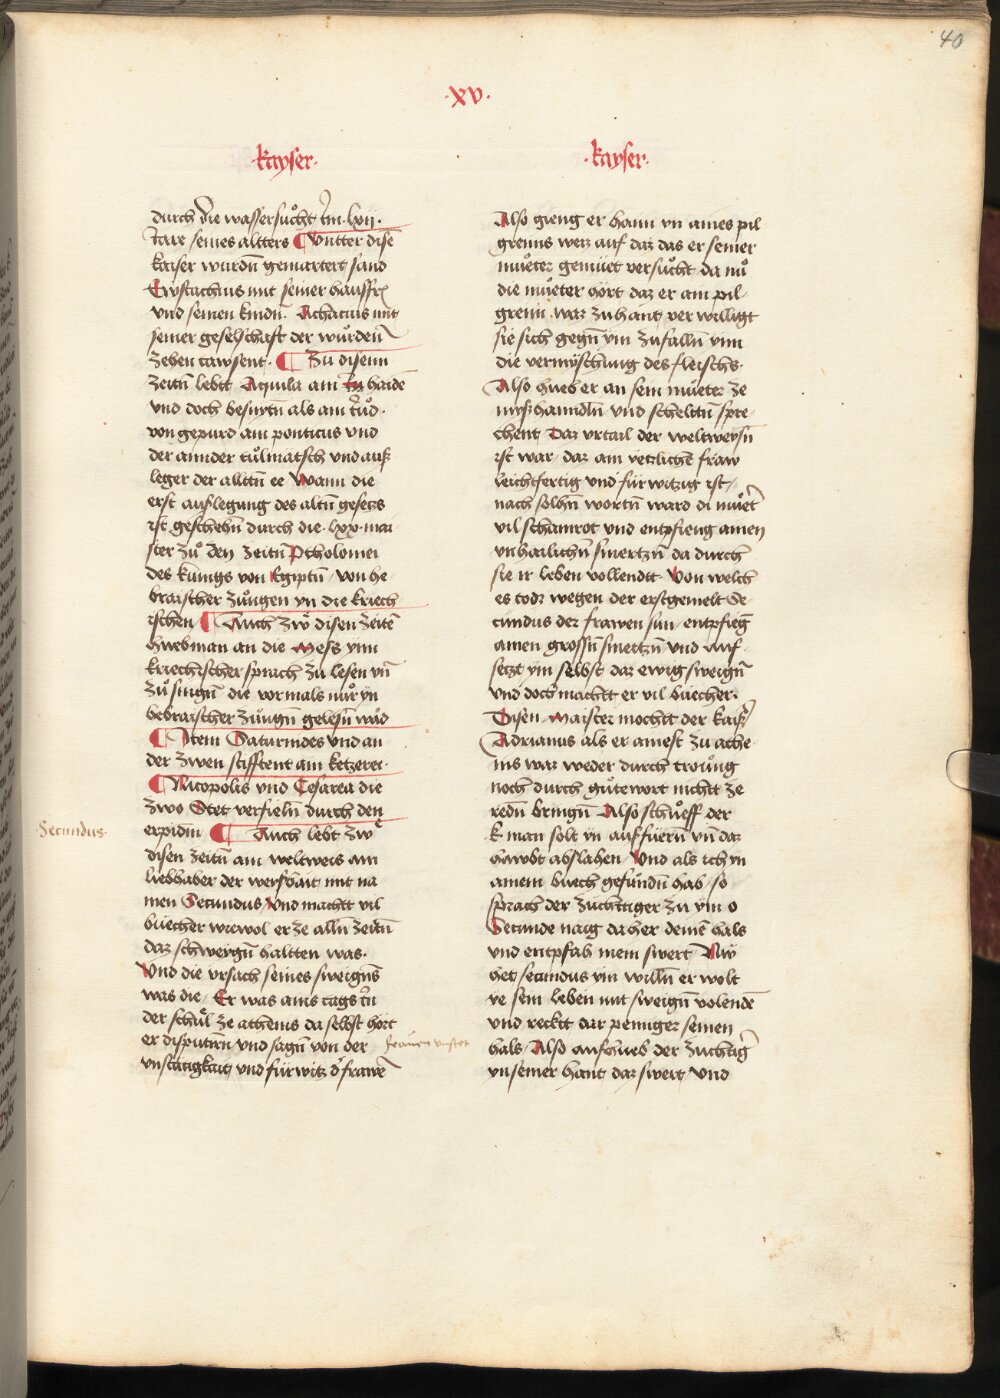 40
·xv·
·kayser·
durch die wassersuͦcht im lxij·
Iare seines altters ¶ Vntter dise
kaiser wurdn̄ gemartert sand
Ewstachius mit seiner haussfr
vnd seinen kindn̄· Achacius mit
seiner geselschaft der wuͤrden
zehen tawsent· ¶ Zu disenn
zeitn̄ lebtt Aquila ain haide
vnd doch besnytn̄ als ain iud·
von gepurd ain ponticus vnd
der annder tuͤlmatsch vnd auß
leger der alltn̄ ee Wann die
erst auslegung des altn̄ gesetzs
ist geschehn̄ durch die· lxx· mai
ster zuͦ den zeitn̄ Ptholomei
des kunigs von Egiptn̄ / von he
braischer zuͦngen yn die kriech
ischen ¶ Auch zw disen zeite
hueb man an die Mess ynn
kriechischer sprach zu lesen vn̄
zuͦ singn̄ die vormals nuͦr yn
hebraischer zuͦngn̄ gelesn̄ wad
¶ Item Saturnides vnd an
der zwen stifftent ain ketzerei·
¶ Nicopolis vnd Cesarea die
zwo Stet verfieln̄ durch den
erpidin ¶ Auch lebt zw
disen zeitn̄ ain weltweis ain
liebhaber der weishait mit na
men Secundus / Vnd machtt vil
buecher wiewol er ze alln̄ zeitn̄
daz schweygn̄ haltten was·
Vnd die vrsach seines sweigns
was die / Er was ains tags in
der schuͦl ze athenis da selbst hort
er disputirn vnd sagn̄ von der
vnstatigkait vnd fürwitz d' frawē
Secundus·
frauen vnstet
·kayser·
Also gieng er haim yn aines pil
greims weiz auf daz das er seiner
mueter gemüet versuͦcht da nuͦ
die mueter hort daz er ain pil-
greim waz zuhant verwilligt
sie sich gegn̄ ym zufalln̄ ynn
die vermyschung des fleischs·
Also hueb er an sein mueter ze
myßhanndln̄ vnd scheltn̄ spre-
chent Daz vrtail der weltweysn̄
ist war / daz ain yetzliche fraw
leichtfertig vnd fürwitzig ist /
nach solhn̄ wortn̄ ward di muet'
vil schamrot vnd entpfieng ainen
vnhailichn̄ smertzn̄ da durch
sie ir leben vollendtt Von welch
es todz wegen der erstgemelt Se-
cundus der frawen sun / entpfieg
ainen grossn̄ smertzn̄ vnd auf-
setzt ym selbst daz ewig sweign̄
vnd doch machtt er vil buecher·
Disen Maister mochtt der kaiser
Adrianus als er ainest zu athe
nis waz weder durch troung
noch durch guͤte wort nichtt ze
redn̄ bringn̄ Also schueff der
k man solt yn ausfüern vn̄ daz
hawbt abslahen / Vnd als ich yn
ainem buech gefundn̄ hab / so
sprach der züchttiger zu ym o
Secunde naig da her deinē hals
vnd entpfah mein swert Nw
het secundus ym willn̄ er wolt
ye sein leben mit sweign̄ volende
vnd recktt dar peiniger seinen
hals / Also aufhueb der zuchtig'
yn seiner hant daz swert / vnd